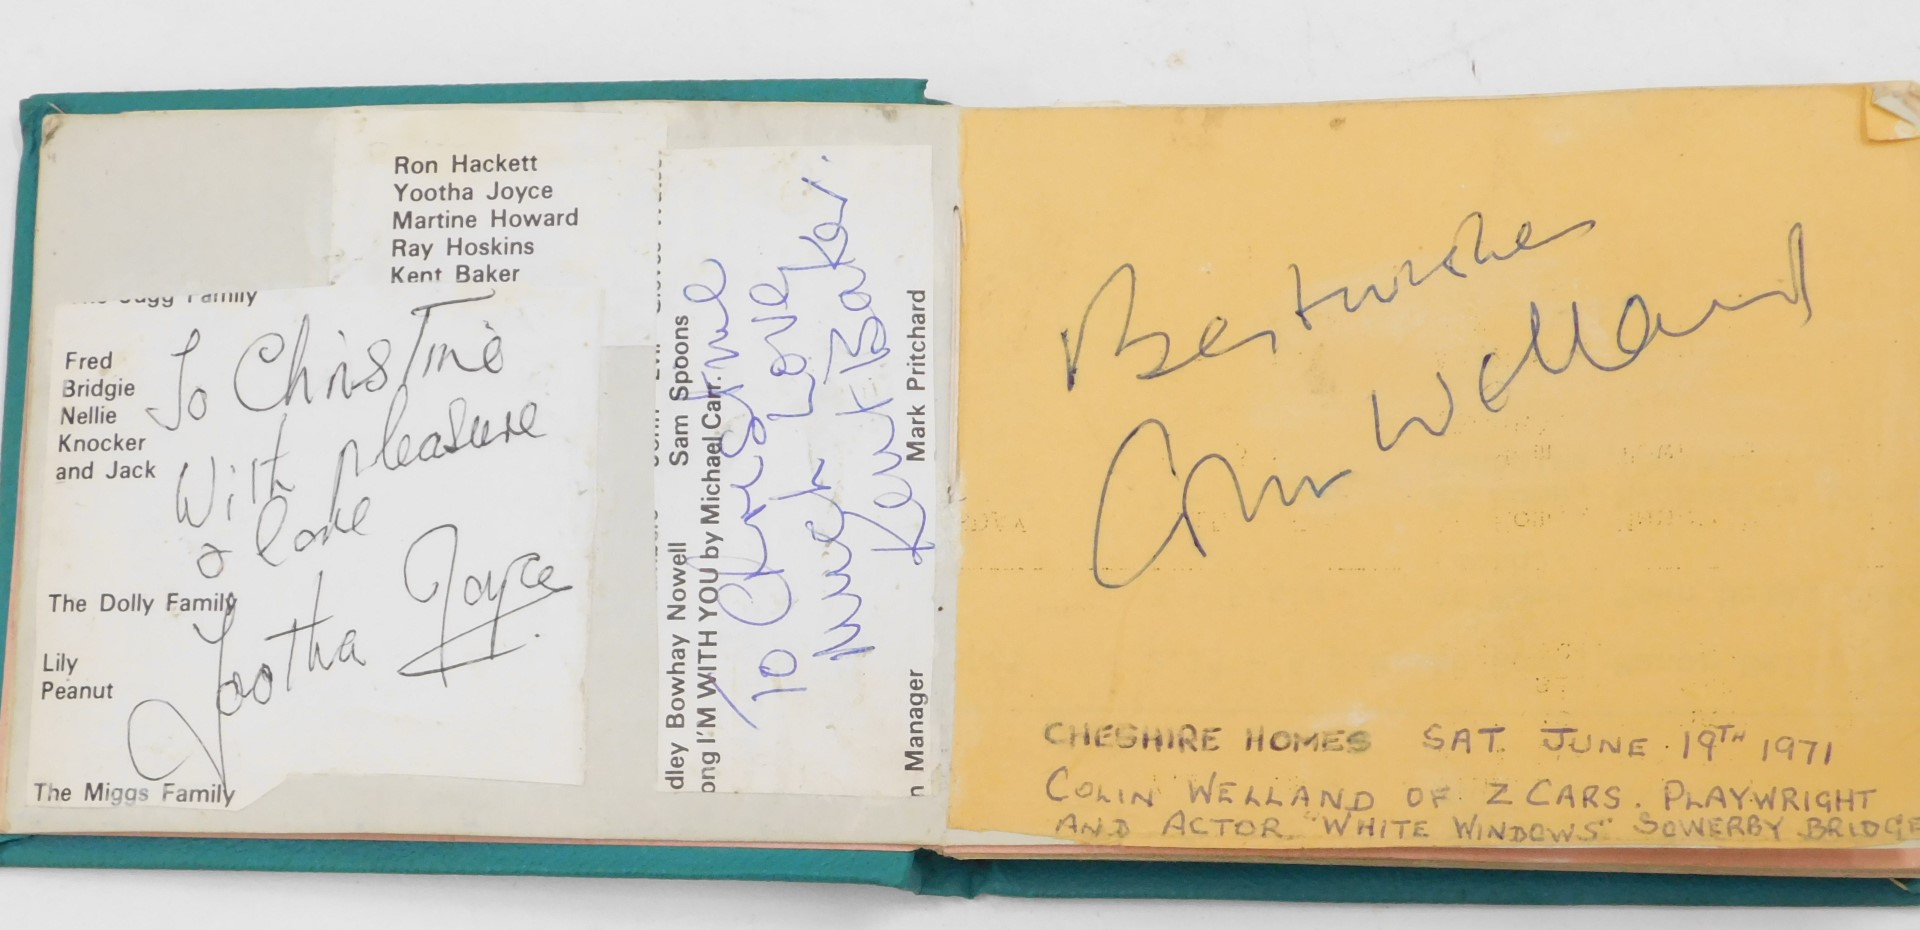 Ron Hackett
Yootha Joyce
Martine Howard
Ray Hoskins
Kent Baker
Family
Fred
Bridgie
Nellie
Knocker
and Jack
The Dolly Family
Lily
Peanut
The Miggs Family
To Christine
With pleasure
& love
Yootha Joyce
Sam Spoons
dley Bowhay Nowell
ong I'M WITH YOU by Michael Carr.
To Christine
much Love
Kent Baker.
Mark Pritchard
n Manager
Best wishes
Colin Welland
CHESHIRE HOMES SAT. JUNE 19TH 1971
COLIN WELLAND OF Z CARS. PLAYWRIGHT
AND ACTOR. "WHITE WINDOWS" SOWERBY BRIDGE